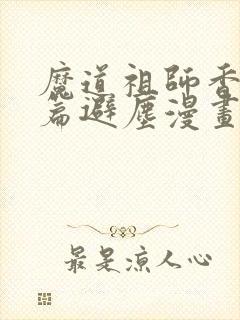 魔道祖師香
篇避塵漫畫
最是凉人心